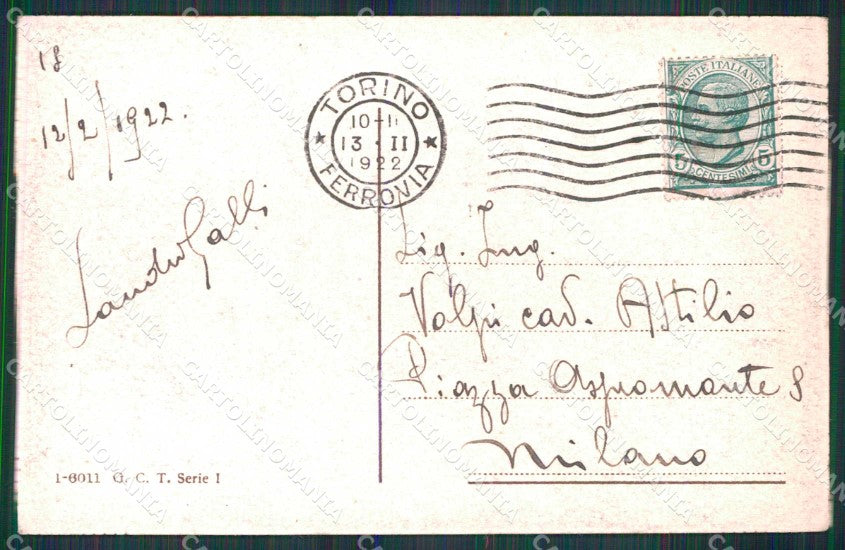 18
12/2/1922.
Sandro Galli
TORINO
10-11
13 · II
1922
FERROVIA
POSTE ITALIANE
5 CENTESIMI 5
Sig. Ing.
Volpi cav. Attilio
Piazza Aspromonte 8
Milano
1-6011 G. C. T. Serie I
CARTOLINOMANIA